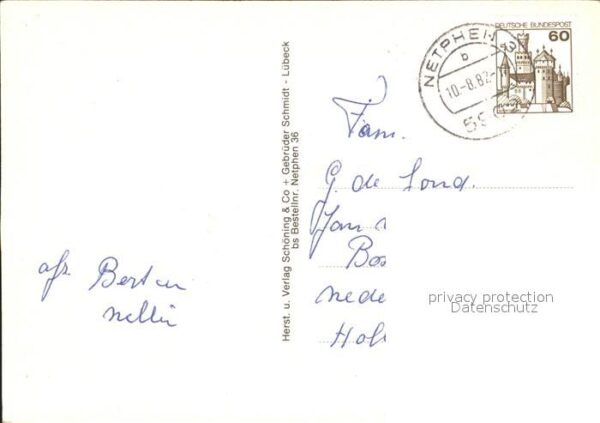 DEUTSCHE BUNDESPOST
60
NETPHEN 3
b
10.-8.82
590
Fam.
G. de Lond.
Jan
Bos
nede
Hol
afz. Bert en
nellie
Herst. u. Verlag Schöning & Co + Gebrüder Schmidt - Lübeck
bs Bestellnr. Netphen 36
privacy protection
Datenschutz